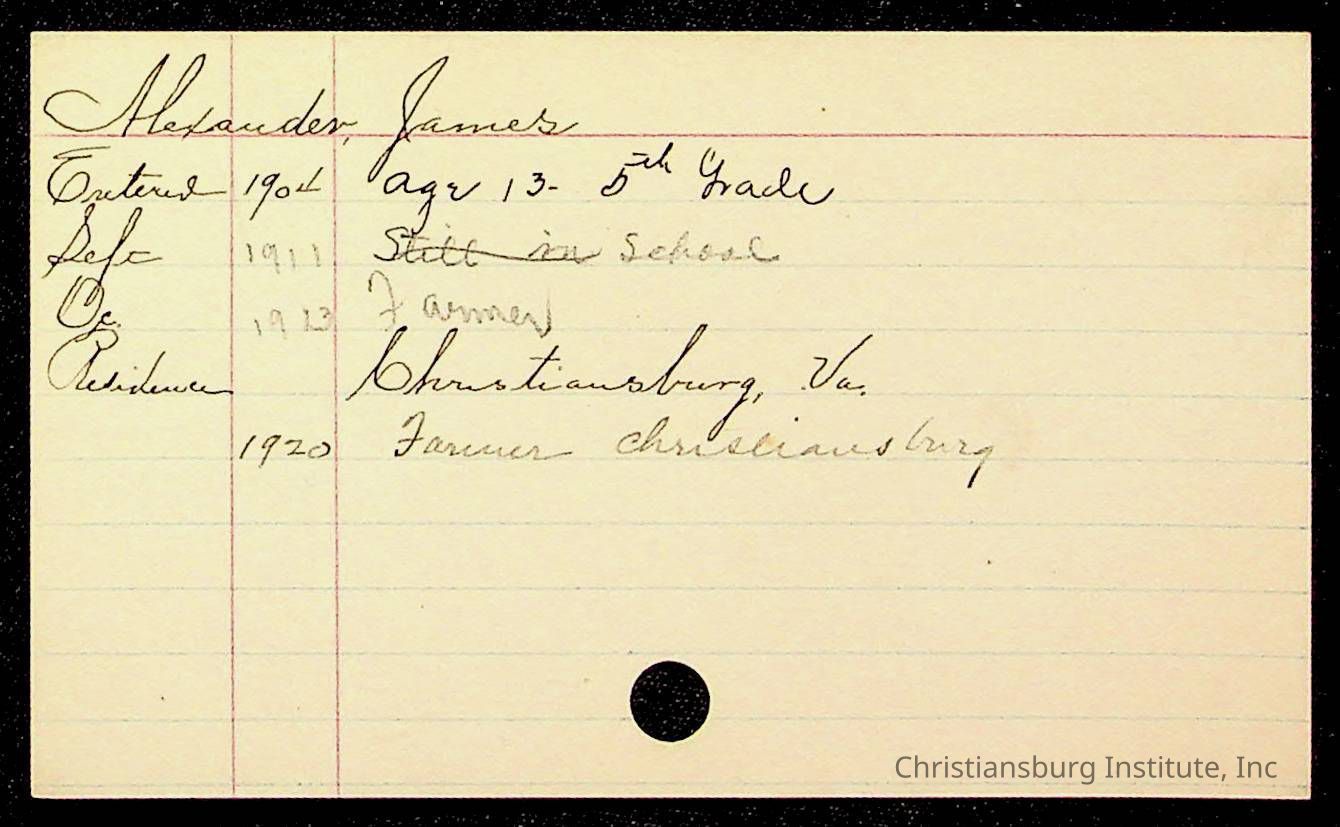 Alexander, James
Entered 1904 age 13- 5th Grade
Left 1911 Still in School
Oc. 1913 Farmer
Residence Christiansburg, Va.
1920 Farmer Christiansburg
Christiansburg Institute, Inc